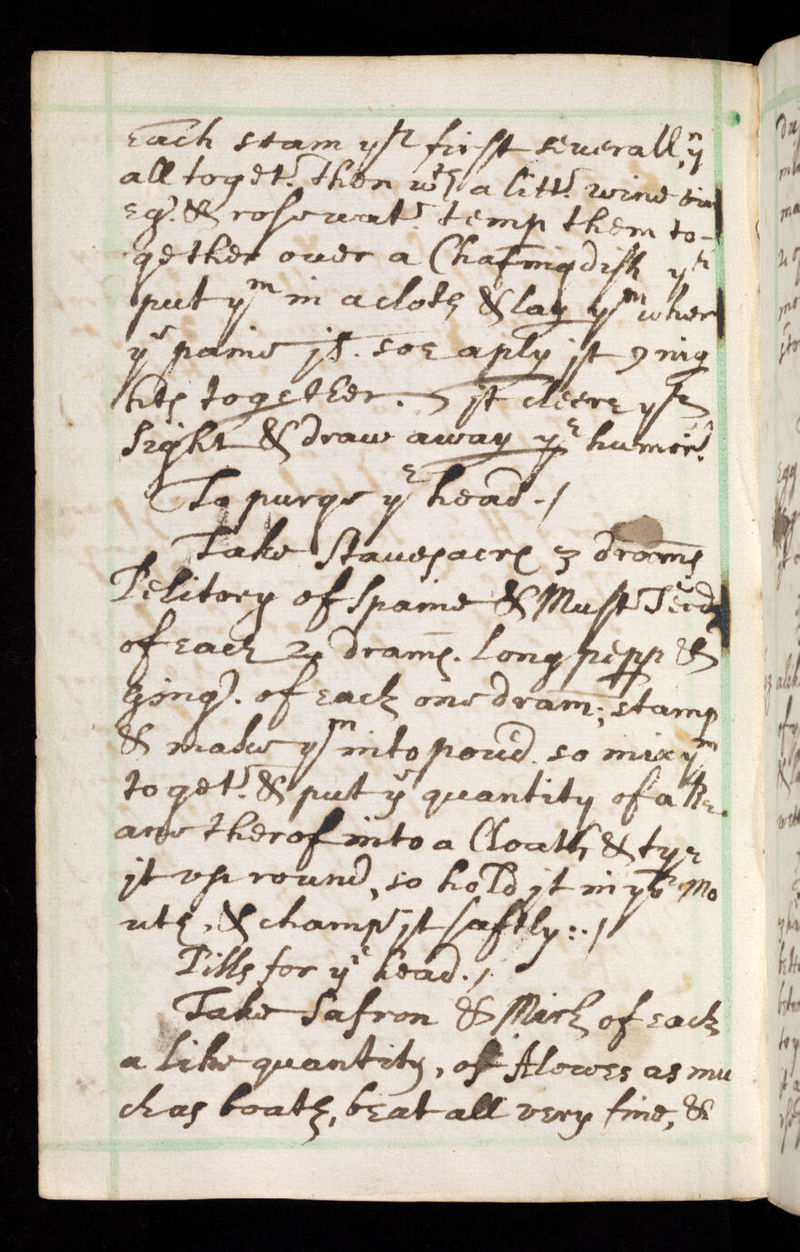 Each stam yse first seuerall, yn
all toget.r then wth a litt.r wine vin
eg.r & rose wat.r temp them to-
gether over a Chafing dish yn
put ym in a cloth & lay ym wher
ye paine js. soe aply jt 9 nig
hts together. jt cleere yse
sight & draw away ye humors.
To purge ye head./
Take Stauesacre 3 drams
Pelitory of Spaine & Must Seed
of each 2 drams. Long pepp &
Ging.r of each one dram; stamp
& make ym into powd. so mix ym
toget.r & put ye quantity of a Be.
ane therof into a Cloath, & tye
jt vp round, so hold jt in yor Mo
uth, & champ jt softly:./
Pills for ye head./
Take Safron & Mirh of each
a like quantity, of Alowes as mu
ch as boath, beat all very fine, &